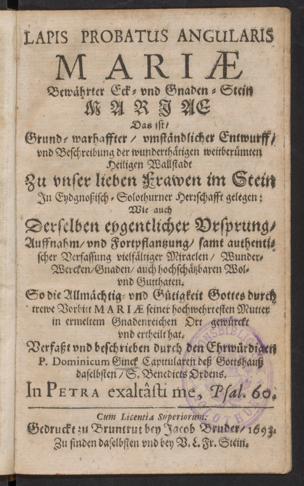 LAPIS PROBATUS ANGULARIS
MARIÆ
Bewährter Eck- vnd Gnaden-Stein
MARIAE
Das ist/
Grund-warhaffter/ vmständlicher Entwurff/
vnd Beschreibung der wunderthätigen weitberümten
Heiligen Wallstadt
Zu vnser lieben Frawen im Stein
In Eydgnoßisch-Solothurner Herrschafft gelegen:
Wie auch
Derselben eygentlicher Vrsprung/
Auffnahm/ vnd Fortpflantzung/ samt authenti-
scher Verfassung vielfältiger Miraclen/ Wunder-
Wercken/ Gnaden/ auch hochschätzbaren Wol-
vnd Gutthaten.
So die Allmächtig- vnd Gütigkeit Gottes durch
trewe Vorbitt MARIÆ seiner hochwehrtesten Mutter
in ermeltem Gnadenreichen Ort gewürckt
vnd ertheilt hat.
Verfaßt vnd beschrieben durch den Ehrwürdigen
P. Dominicum Ginck Capitularen deß Gottshauß
daselbsten/ S. Benedicts Ordens.
In PETRA exaltâsti me, Psal. 60.
Cum Licentia Superiorum:
Gedruckt zu Bruntrut bey Jacob Bruder/ 1693.
Zu finden daselbsten vnd bey V. L. Fr. Stein.